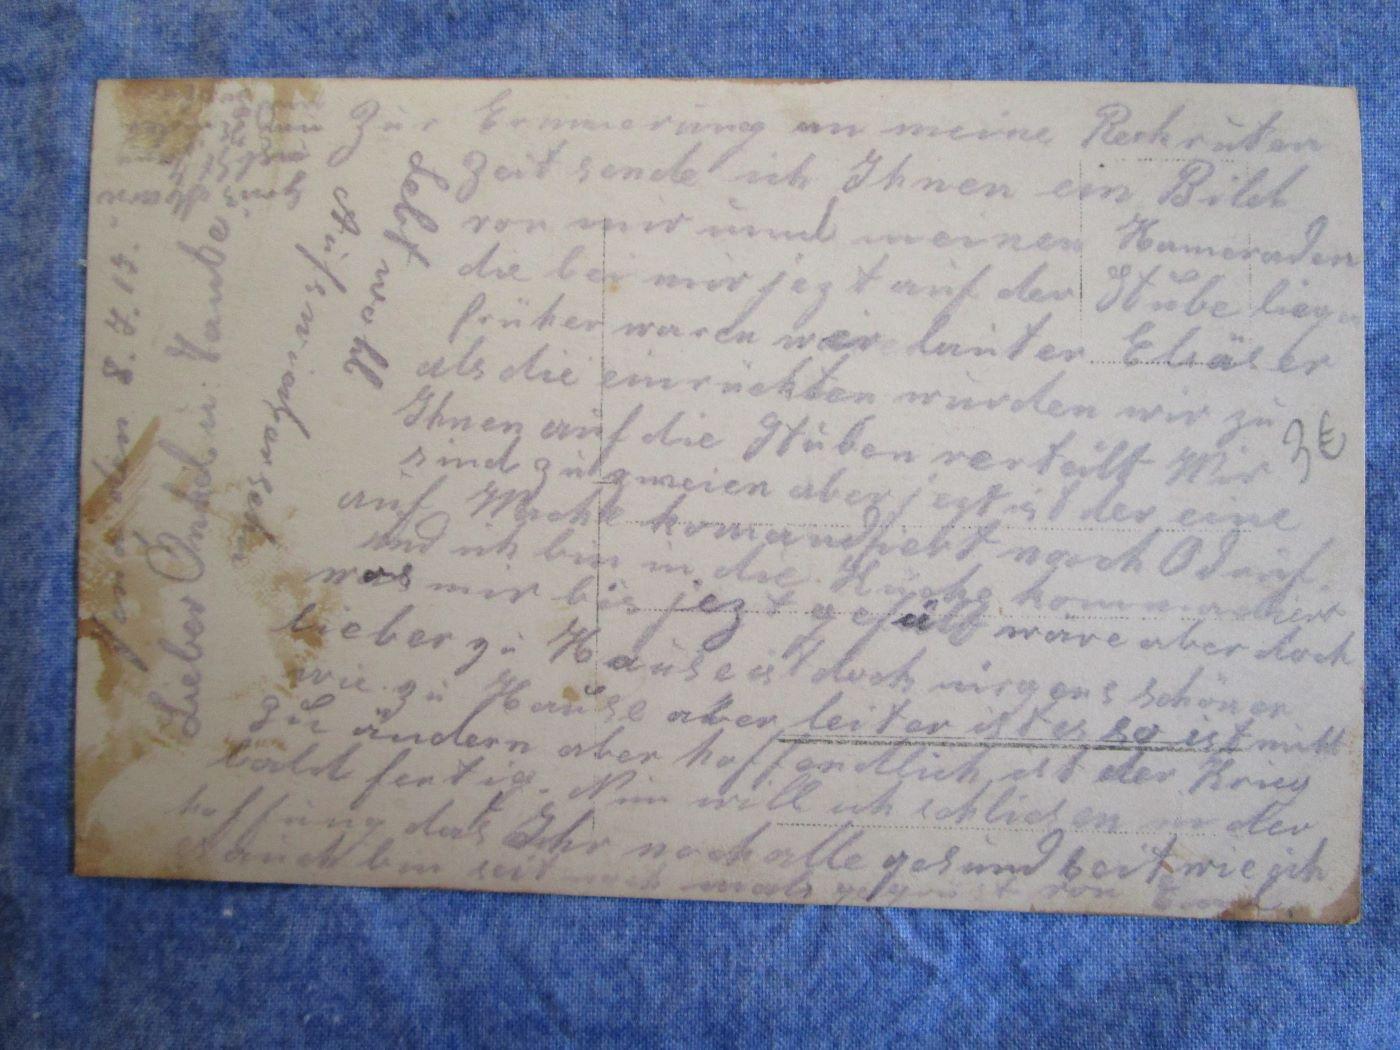 in 8.7.15.
Lieber Onkel u.
Zur Erinnerung an meine Reckruten
Zeit sende ich Ihnen ein Bild
von mir unnd meinen Kameraden
die bei mir jezt auf der Stube liegen
früher waren wir lauter Elsäser
als die einrückten wurden wir zu
Ihnen auf die Stuben verteilt Wir
sind zu zweien aber jezt ist der eine
auf Wache komandiert nach Odruf.
und ich bin in die Küche kommandiert
was mir bis jezt gefällt wäre aber doch
lieber zu Hause ist doch nirgens schöner
wie zu Hause aber leiter ist es so ist nicht
zu ändern aber hoffendlich ist der Krieg
bald fertig. Nun will ich schliesen in der
hoffnung das Ihr noch alle gesund seit wie ich
es auch bin seit noch mals gegrüst von
Lebt wohl
Auf wiedersehn
3€